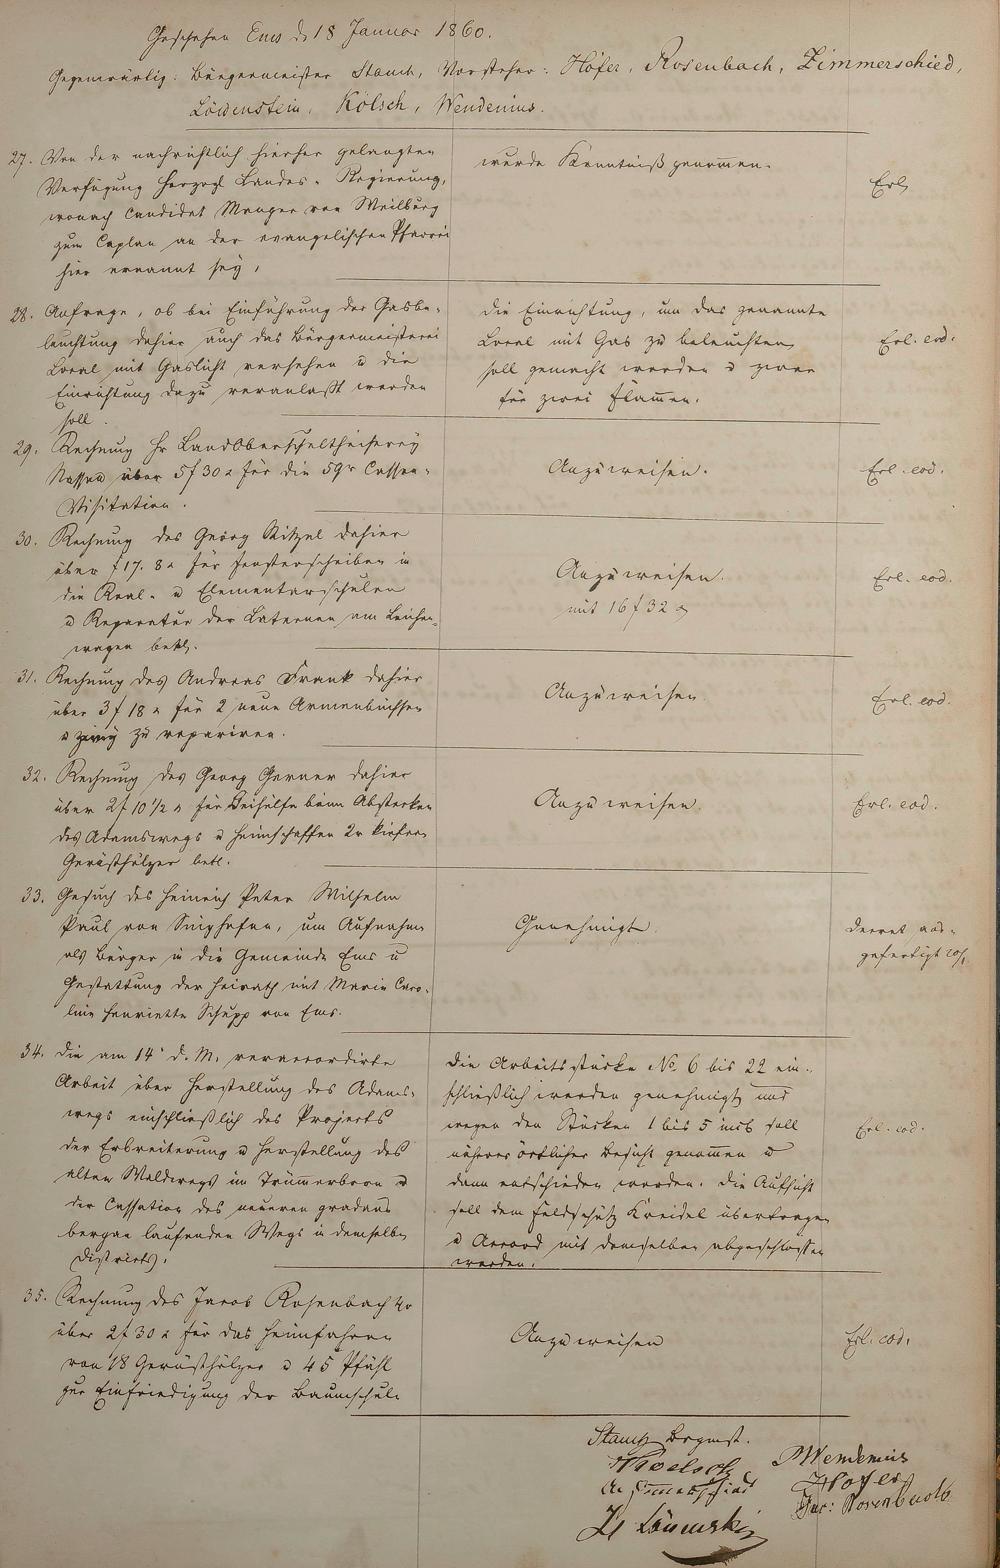 Geschehen Ems d. 18 Januar 1860.
Gegenwärtig: Bürgermeister Stamm, Vorsteher: Höfer, Rosenbach, Zimmerschied,
Löwenstein, Kölsch, Wendenius.
27. Von der nachrichtlich hierher gelangten
Verfügung Herzogl Landes-Regierung,
wonach Candidat Menger von Weilburg
zum Caplan an der evangelischen Pfarrei
hier ernannt sey,
wurde Kenntniß genommen.
Erl
28. Anfrage, ob bei Einführung der Gasbe-
leuchtung dahier auch das Bürgermeisterei
Local mit Gaslicht versehen u die
Einrichtung dazu veranlaßt werden
soll.
die Einrichtung, um das genannte
Local mit Gas zu beleuchten
soll gemacht werden u zwar
für zwei Flammen.
Erl. eod.
29. Rechnung Hr LandOberschultheiserey
Nassau über 5 f 30 x für die 59r Cassen-
Visitation.
Anzuweisen.
Erl. eod.
30. Rechnung des Georg Kitzel dahier
über f 17. 8 x für Fensterscheiben in
die Real- u Elementarschulen
u Reparatur der Laternen am Leichen-
wagen betr.
Anzuweisen.
mit 16 f 32 x
Erl. eod.
31. Rechnung des Andreas Frank dahier
über 3 f 18 x für 2 neue Armenbüchsen
u zu repariren.
Anzuweisen
Erl. eod.
32. Rechnung des Georg Gerner dahier
über 2 f 10 1/2 x für Beihülfe beim Abstecken
des Adamswegs u Heimschaffen 2r kiefern
Gerüsthölzer betr.
Anzuweisen
Erl. eod.
33. Gesuch des Heinrich Peter Wilhelm
Paul von Singhofen, um Aufnahme
als Bürger in die Gemeinde Ems u
Gestattung der Heirath mit Marie Caro-
line Henriette Schupp von Ems.
Genehmigt
Decret aus-
gefertigt 20/1
34. die am 14t d. M. veraccordirte
Arbeit über Herstellung des Adams-
wegs einschließlich des Projects
der Erbreiterung u Herstellung des
alten Waldwegs im Trümmerborn u
der Cassation des neueren gradaus
bergan laufenden Wegs in demselben
Districts,
die Arbeitsstücke No 6 bis 22 ein-
schließlich werden genehmigt und
wegen den Stücken 1 bis 5 incl soll
näherer örtlicher Besicht genommen u
dann entschieden werden. die Aufsicht
soll dem Feldschütz Kreidel übertragen
u Accord mit demselben abgeschlossen
werden.
Erl. eod.
35. Rechnung des Jacob Rosenbach
über 2 f 30 x für das Heimfahren
von 18 Gerüsthölzer u 45 Pfähl
zur Einfriedigung der Baumschule
Anzuweisen
Erl. eod.
Stamm Brgmst.
Koelsch
Zimmerschied
Wendenius
Höfer
Jac: Rosenbach